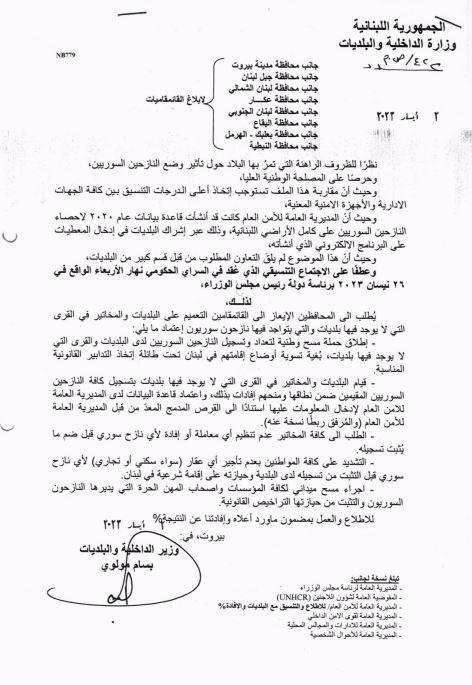 الجمهورية اللبنانية
وزارة الداخلية والبلديات
NB779
جانب محافظة مدينة بيروت
جانب محافظة جبل لبنان
جانب محافظة لبنان الشمالي
جانب محافظة عكـــار
جانب محافظة لبنان الجنوبي
جانب محافظة البقاع
جانب محافظة بعلبك - الهرمل
جانب محافظة النبطية
لابلاغ القائمقاميات
٢ أيار ٢٠٢٣
نظرًا للظروف الراهنة التي تمرّ بها البلاد حول تأثير وضع النازحين السوريين،
وحرصًا على المصلحة الوطنية العليا،
وحيث أنّ مقاربة هذا الملف تستوجب إتخاذ أعلى الدرجات التنسيق بين كافة الجهات
الادارية والأجهزة الامنية المعنية،
وحيث أنّ المديرية العامة للأمن العام كانت قد أنشأت قاعدة بيانات عام ٢٠٢٠ لاحصاء
النازحين السوريين على كامل الأراضي اللبنانية، وذلك عبر إشراك البلديات في إدخال المعطيات
على البرنامج الالكتروني الذي أنشأته،
وحيث أنّ هذا الموضوع لم يلقَ التعاون المطلوب من قبل قسم كبير من البلديات،
وعطفًا على الاجتماع التنسيقي الذي عُقد في السراي الحكومي نهار الأربعاء الواقع في
٢٦ نيسان ٢٠٢٣ برئاسة دولة رئيس مجلس الوزراء،
لذلـــك،
يُطلب الى المحافظين الإيعاز الى القائمقامين التعميم على البلديات والمخاتير في القرى
التي لا يوجد فيها بلديات والتي يتواجد فيها نازحون سوريون إعتماد ما يلي:
- إطلاق حملة مسح وطنية لتعداد وتسجيل النازحين السوريين لدى البلديات والقرى التي
لا يوجد فيها بلديات، بُغية تسوية أوضاع إقامتهم في لبنان تحت طائلة إتخاذ التدابير القانونية
المناسبة.
- قيام البلديات والمخاتير في القرى التي لا يوجد فيها بلديات بتسجيل كافة النازحين
السوريين المقيمين ضمن نطاقها ومنحهم إفادات بذلك، واعتماد قاعدة البيانات لدى المديرية العامة
للامن العام لإدخال المعلومات عليها استنادًا الى القرص المدمج المعدّ من قبل المديرية العامة
للأمن العام (والمُرفق ربطًا نسخة عنه).
- الطلب الى كافة المخاتير عدم تنظيم أي معاملة أو إفادة لأي نازح سوري قبل ضم ما
يُثبت تسجيله.
- التشديد على كافة المواطنين بعدم تأجير أي عقار (سواء سكني أو تجاري) لأي نازح
سوري قبل التثبت من تسجيله لدى البلدية وحيازته على إقامة شرعية في لبنان.
- اجراء مسح ميداني لكافة المؤسسات واصحاب المهن الحرة التي يديرها النازحون
السوريون والتثبت من حيازتها التراخيص القانونية.
للاطلاع والعمل بمضمون ماورد أعلاه وإفادتنا عن النتيجة%
بيروت، في:
٢ أيار ٢٠٢٣
وزير الداخلية والبلديات
بسام مولوي
تبلغ نسخة لجانب:
- المديرية العامة لرئاسة مجلس الوزراء
- المفوضية العامة لشؤون اللاجئين (UNHCR)
- المديرية العامة للأمن العام/ للاطلاع والتنسيق مع البلديات والافادة%
- المديرية العامة لقوى الامن الداخلي
- المديرية العامة للادارات والمجالس المحلية
- المديرية العامة للأحوال الشخصية